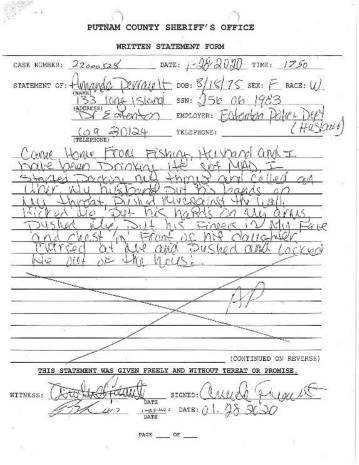 PUTNAM COUNTY SHERIFF'S OFFICE
WRITTEN STATEMENT FORM
CASE NUMBER: DATE: 1-28-2020 TIME: 1750
STATEMENT OF: Amanda DOB: SEX: F RACE: W
(NAME)
133 long Island SSN:
(ADDRESS)
Dr Eatenton EMPLOYER: Eatenton Police Dept
(Husband)
TELEPHONE:
(TELEPHONE)
Came Home From Fishing, Husband and I
have been Drinking. He got MAD I
Started Packing my things and called an
Uber. My husband put his hands on
My throat, Pushed Me against the wall,
Kicked me, Put his hands on my arms,
Pushed Me, Put his Fingers in My Face
and chest in Front of his daughter
at me and Pushed and Locked
Me out of the house.
AP
(CONTINUED ON REVERSE)
THIS STATEMENT WAS GIVEN FREELY AND WITHOUT THREAT OR PROMISE.
WITNESS: SIGNED:
DATE
DATE: 01.28.2020
DATE
PAGE ___ OF ___